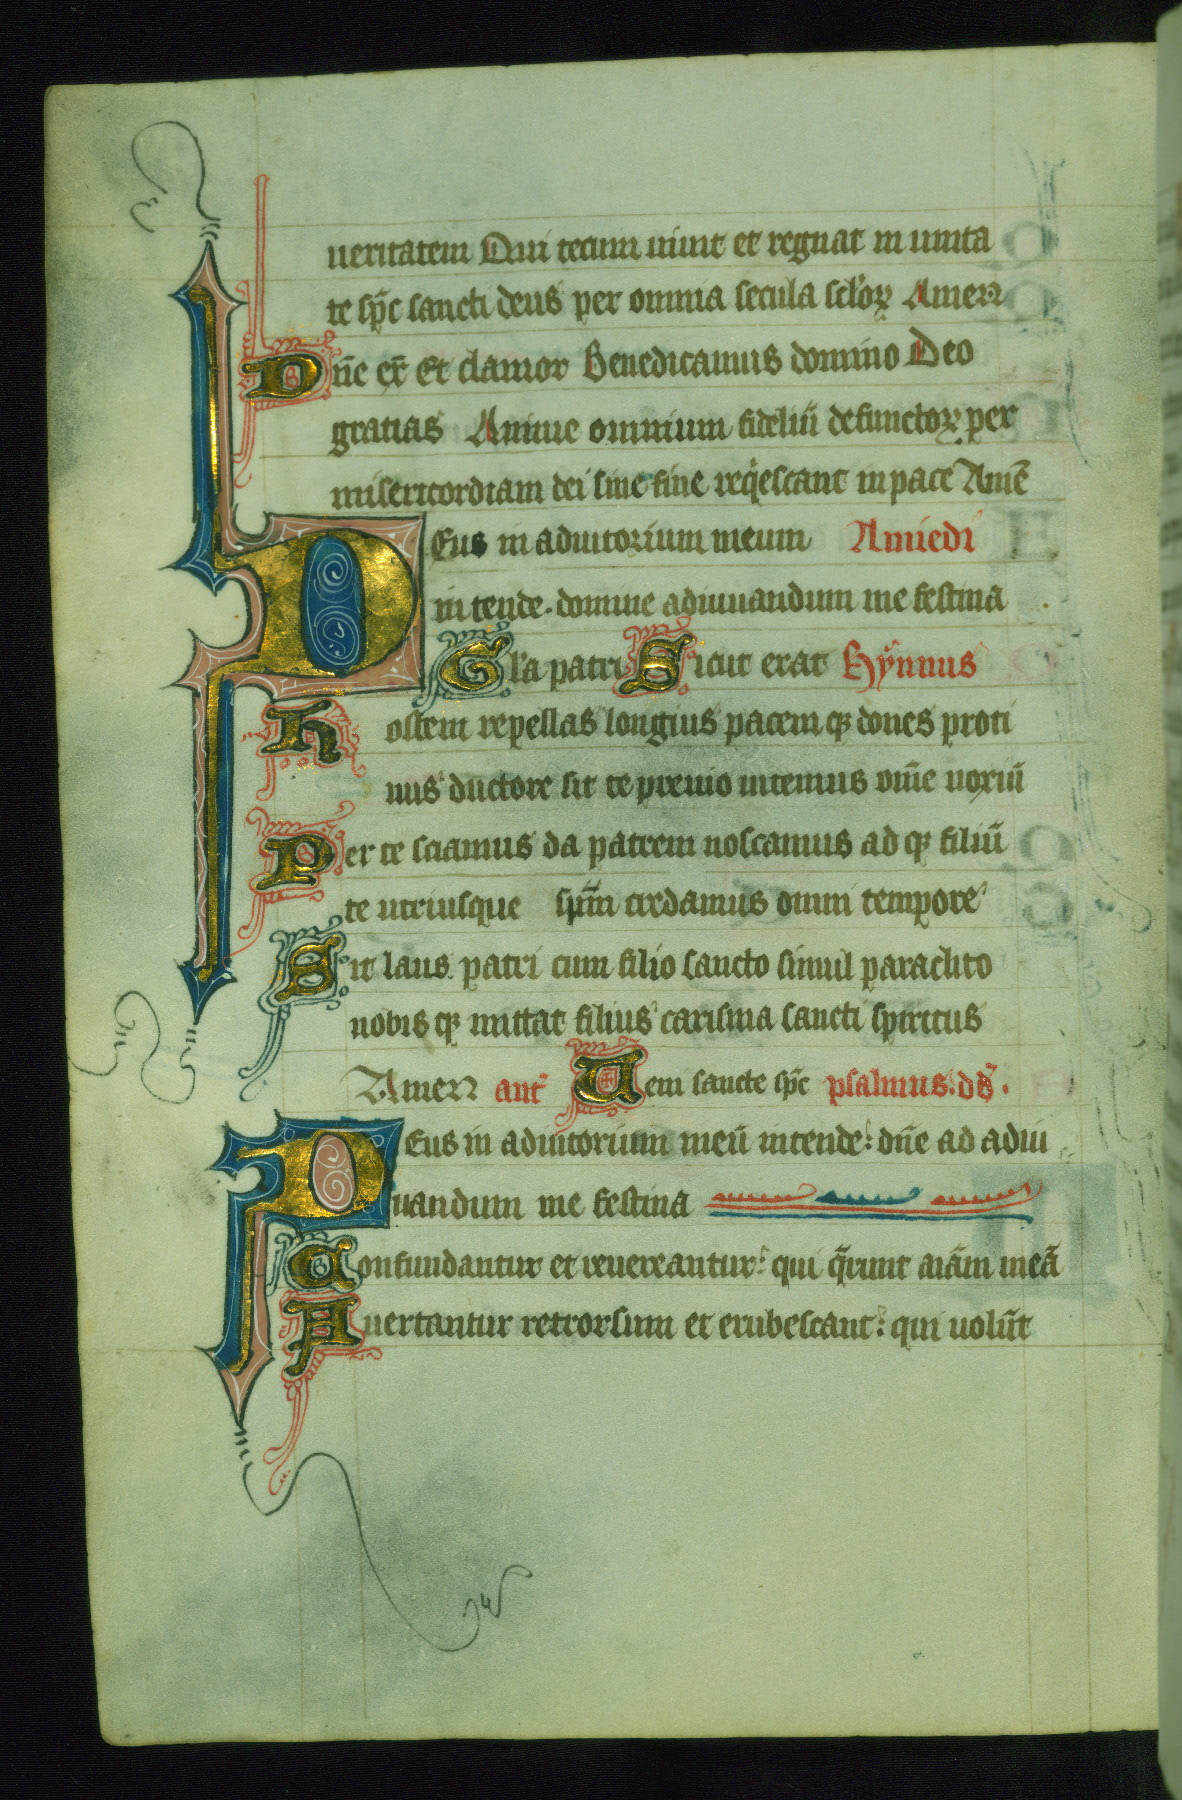 ueritatem Qui tecum uiuit et regnat in unita
te sp̄c sancti deus per omnia secula sc̄loꝝ Amen
Dn̄e ex̄ Et clamor Benedicamus domino Deo
gratias Anime omnium fideliū defunctoꝝ per
misericordiam dei sine fine reqͥescant in pace Amē
Deus in adiutorium meum Amiedi
intende. domine adiuuandum me festina
Gl'a patri Sicut erat Hÿnnus
hostem repellas longius pacem qꝫ dones proti
nus ductore sit te preuio uitemus om̄e noxiū
Per te sciamus da patrem noscamus ad qꝫ filiū
te utriusque sp̄m credamus omni tempore
Sit laus patri cum filio sancto simul paraclito
nobis qꝫ mittat filius carisma sancti spiritus
Amen ant' Ueni sancte sp̄c psalmus: d'd.
Deus in adiutorium meū intende: dn̄e ad adiu
uandum me festina
Confundantur et reuereantur: qui q̄runt aīam meā
Auertantur retrorsum et erubescant: qui uolūt